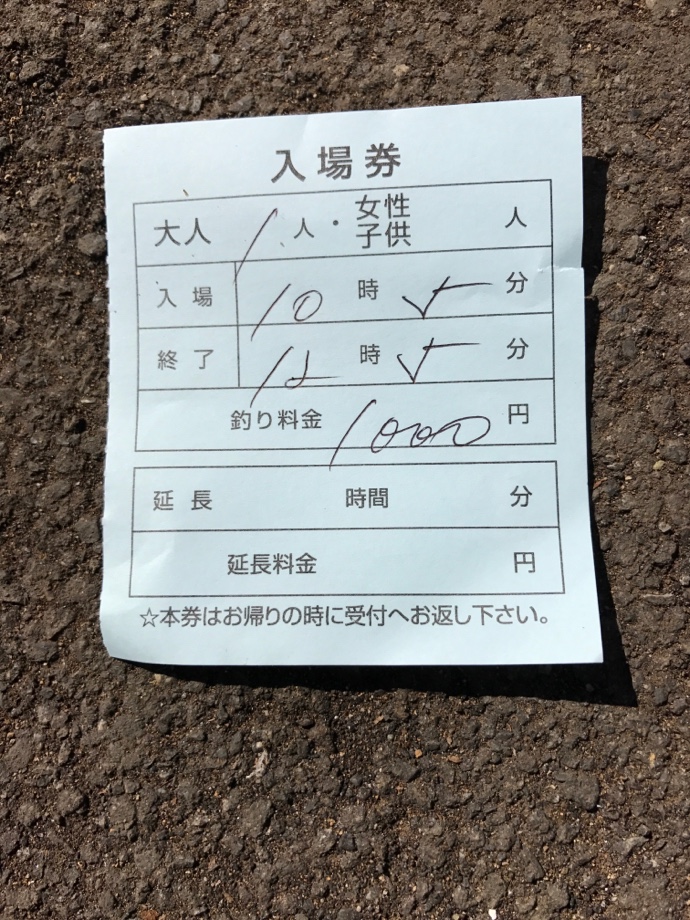 入場券
大人 1 人・女性 子供 人
入場 10 時 5 分
終了 12 時 5 分
釣り料金 1000 円
延長 時間 分
延長料金 円
☆本券はお帰りの時に受付へお返し下さい。